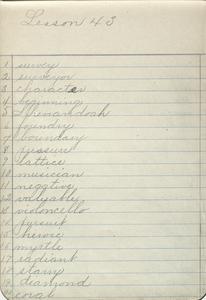 Lesson 43
1 survey
2 surveyor
3 character
4 beginning
5 Shenandoah
6 foundry
7 boundary
8 pressure
9 lattice
10 musician
11 negative
12 valuable
violoncello
pursuit
15 heroic
16 myrtle
17 radiant
18 starry
19 diamond
coral